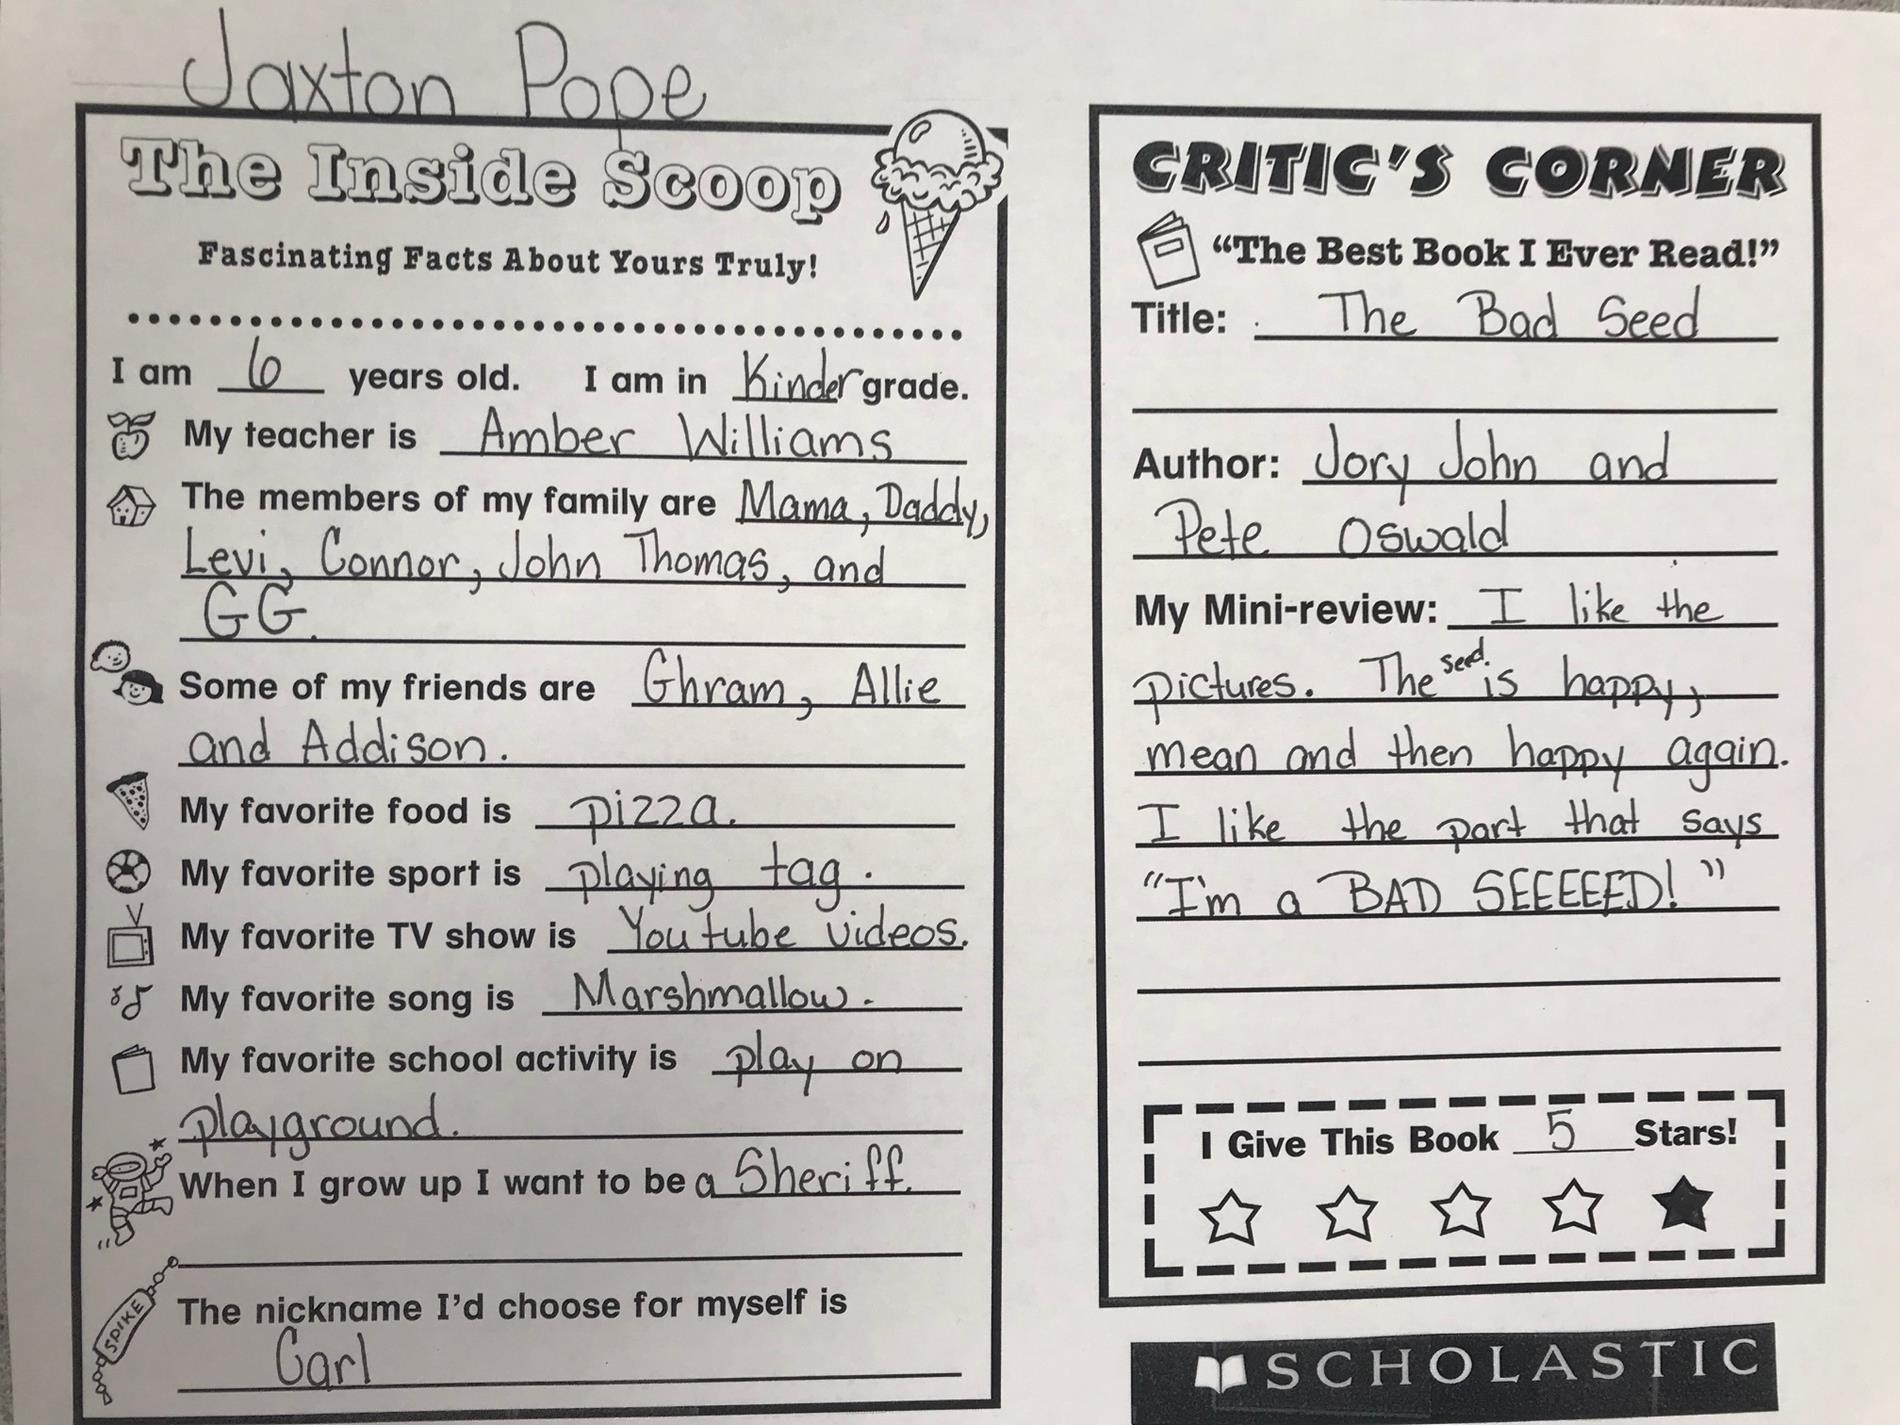 Jaxton Pope
The Inside Scoop
Fascinating Facts About Yours Truly!
I am 6 years old. I am in Kinder grade.
My teacher is Amber Williams
The members of my family are Mama, Daddy,
Levi, Connor, John Thomas, and
GG.
Some of my friends are Ghram, Allie
and Addison.
My favorite food is pizza.
My favorite sport is playing tag.
My favorite TV show is Youtube videos.
My favorite song is Marshmallow.
My favorite school activity is play on
playground.
When I grow up I want to be a Sheriff.
SPIKE
The nickname I'd choose for myself is
Carl
CRITIC'S CORNER
"The Best Book I Ever Read!"
Title: The Bad Seed
Author: Jory John and
Pete Oswald
My Mini-review: I like the
pictures. The seed is happy,
mean and then happy again.
I like the part that says
"I'm a BAD SEEEEED!"
I Give This Book 5 Stars!
SCHOLASTIC